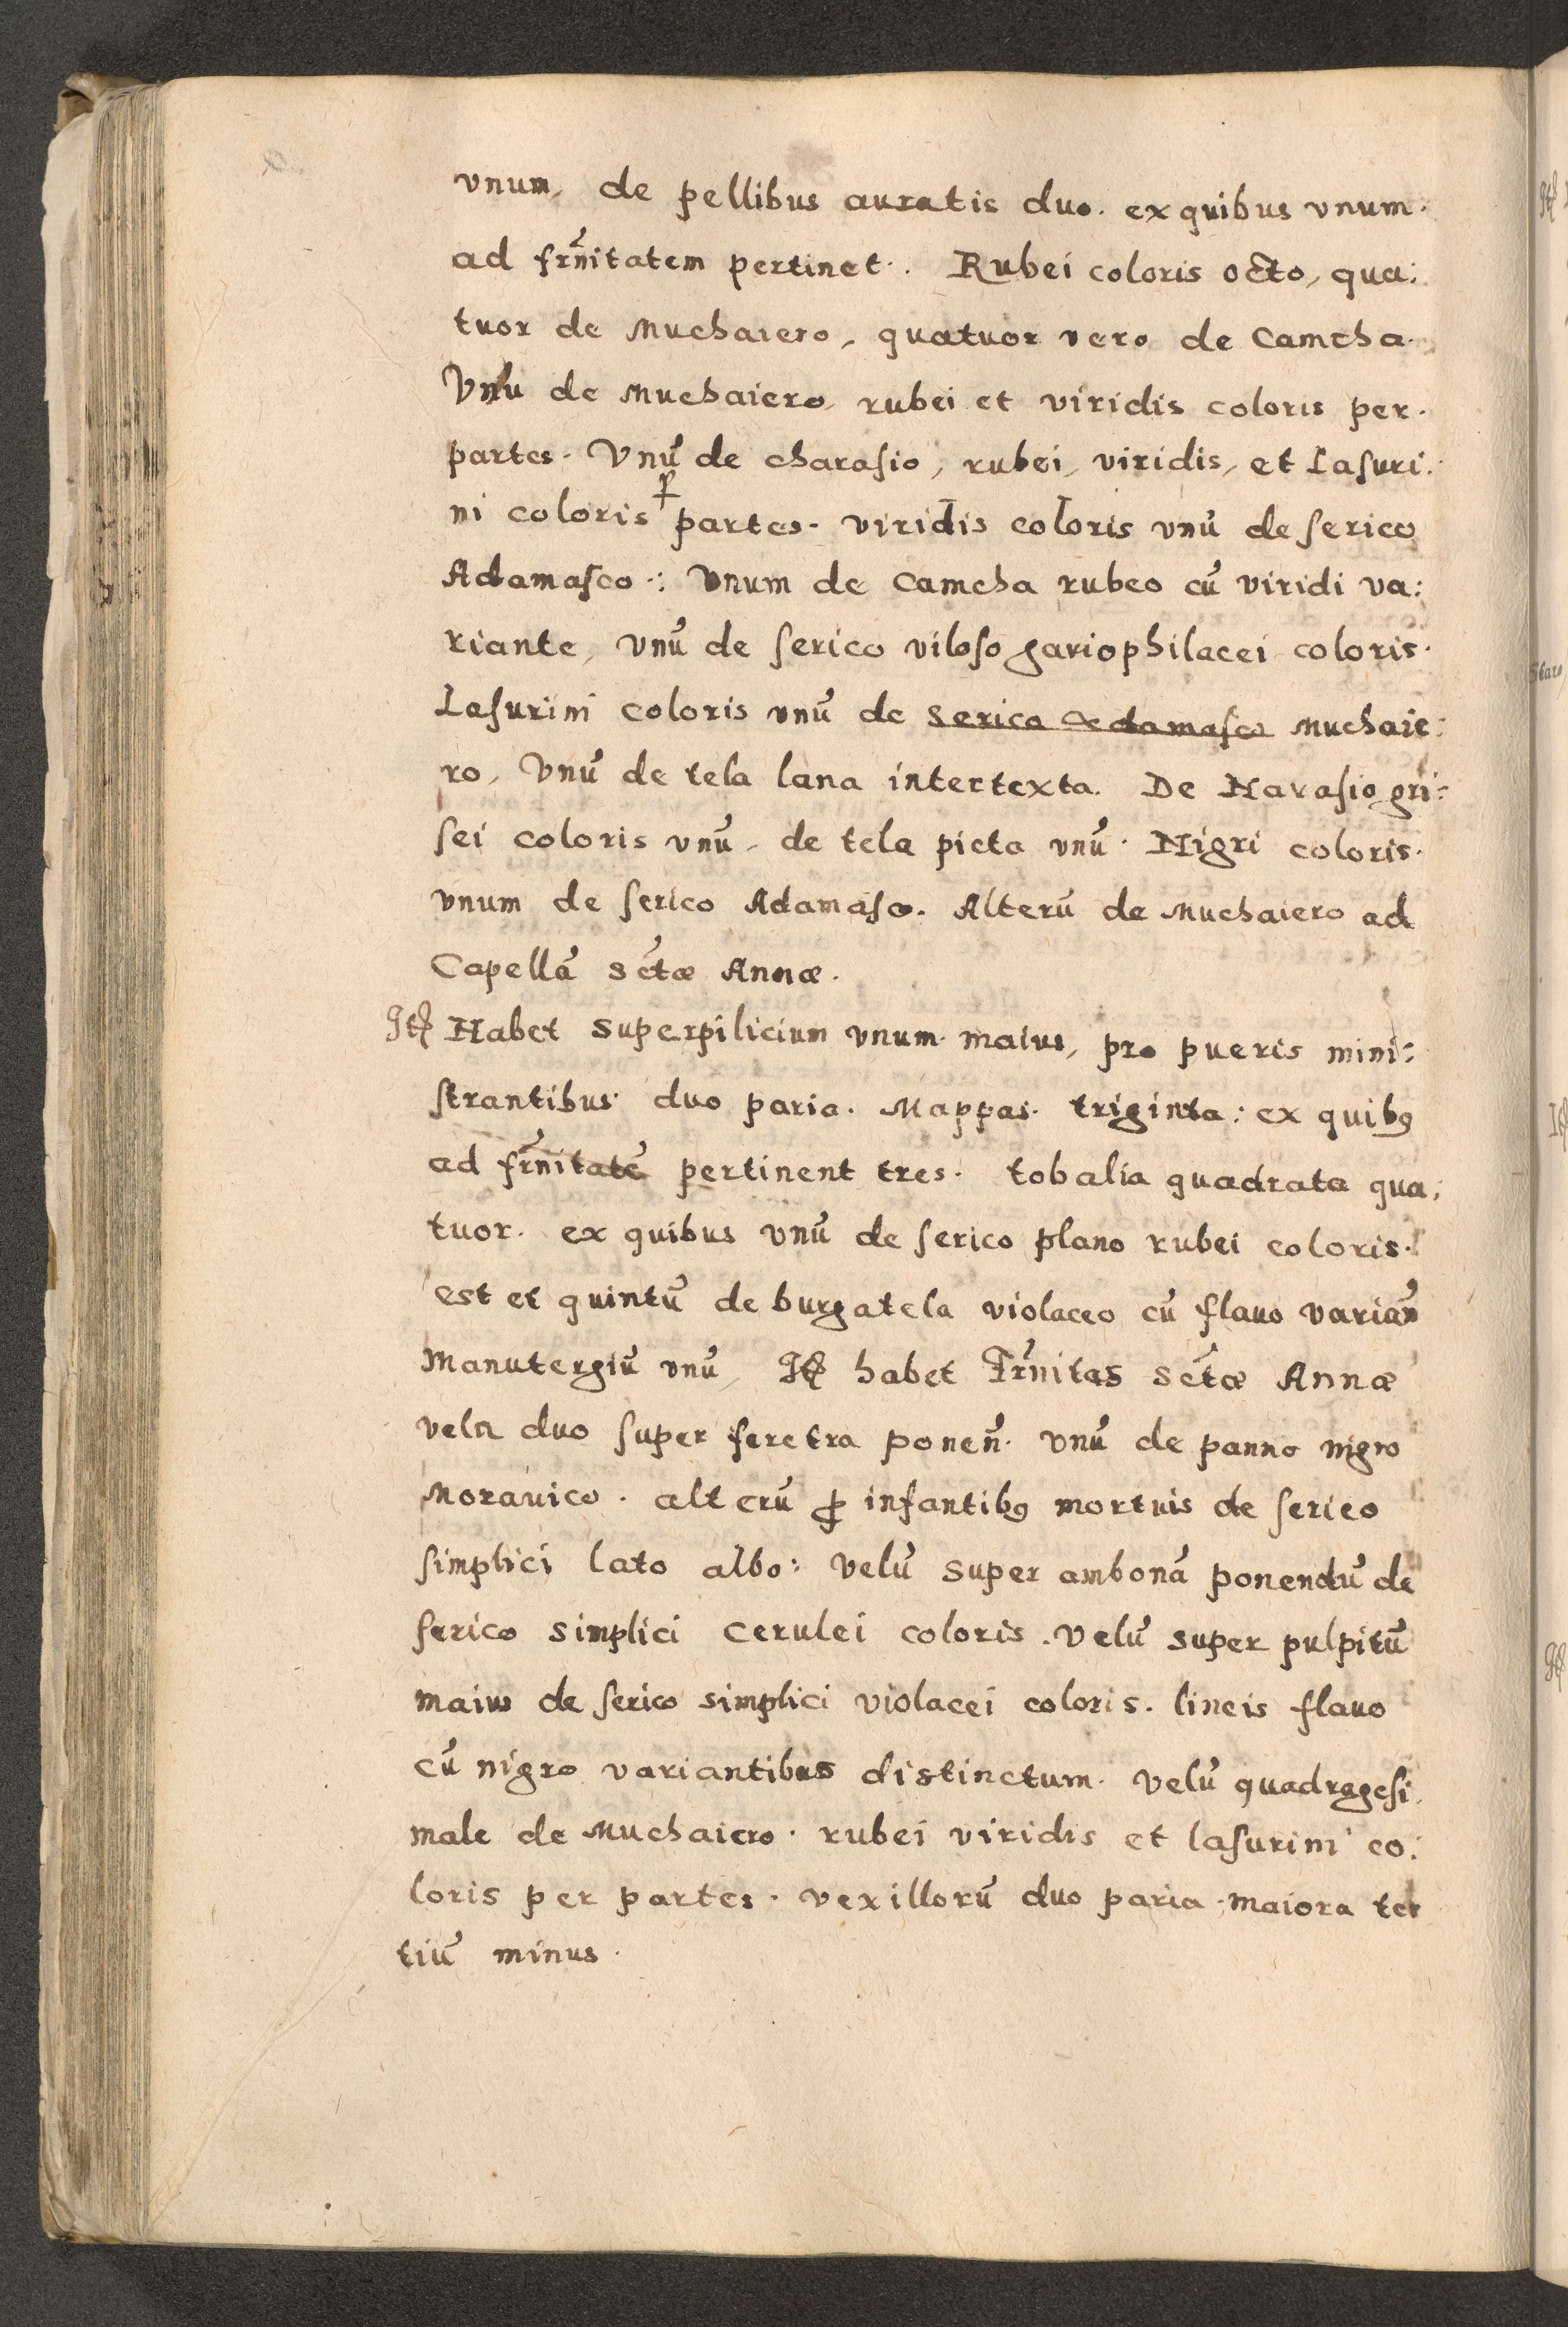 vnum, de pellibus auratis duo. ex quibus vnum.
ad fr̃nitatem pertinet. Rubei coloris octo, qua:
tuor de Muchaiero, quatuor vero de Camcha.
Vnũ de Muchaiero, rubei et viridis coloris per.
partes. Vnũ de charasio, rubei, viridis, et Lasuri:
ni coloris ꝑ partes. viridis coloris vnũ de serico
Adamasco: vnum de Camcha rubeo cũ viridi va:
riante, vnũ de serico viloso gariophilacei coloris.
Lasurini coloris vnũ de serico Adamasco Muchaie:
ro, Vnũ de tela lana intertexta. De Harasio gri:
sei coloris vnũ, de tela picta vnũ. Nigri coloris.
vnum de serico Adamasco. Alterũ de Muchaiero ad
Capellã sctæ Annæ.
Itꝫ Habet superpilicium vnum maius, pro pueris mini:
strantibus duo paria. Mappas triginta: ex quibꝰ
ad fr̃nitatẽ pertinent tres. tobalia quadrata qua:
tuor. ex quibus vnũ de serico plano rubei coloris.
est et quintũ de burgatela violaceo cũ flauo variañ
Manutergiũ vnũ, Itꝫ habet Fr̃nitas sctæ Annæ
vela duo super feretra poneñ. vnũ de panno nigro
Morauico. alterũ ꝓ infantibꝰ mortuis de serico
simplici lato albo: velũ super ambonã ponendũ de
serico simplici cerulei coloris. velũ super pulpitũ
maius de serico simplici violacei coloris. lineis flauo
cũ nigro variantibus distinctum. velũ quadragesi:
male de Muchaiero. rubei viridis et lasurini co:
loris per partes. vexillorũ duo paria maiora ter
tiũ minus.